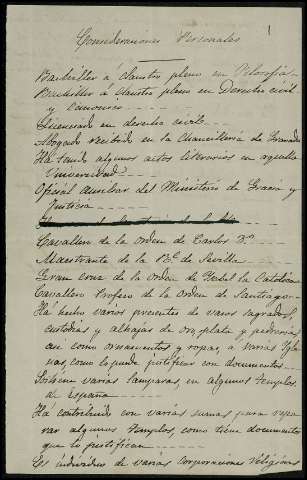 1
Consideraciones Personales
Bachiller á claustro pleno en Filosofia
Bachiller á claustro pleno en Derecho civil
y canonico
Licenciado en derecho civil
Abogado recibido en la Chancilleria de Granada
Ha tenido algunos actos literarios en aquella
Universidad
Oficial auxiliar del Ministerio de Gracia y
Justicia
Caballero de la orden de Carlos 3º
Maestrante de la Rl de Sevilla
Gran Cruz de la Orden de Isabel la Catolica
Caballero Profeso de la Orden de Santiago
Ha hecho varios presentes de vasos sagrados,
custodias y alhajas de oro, plata y pedrerias
asi como ornamentos y ropas, á varias Ygle
sias, como lo puede justificar con documentos
Sostiene varias lamparas, en algunos templos
de España
Ha contribuido con varias sumas para repa
rar algunos templos, como tiene documentos
que lo justifican
Es individuo de varias corporaciones religiosas